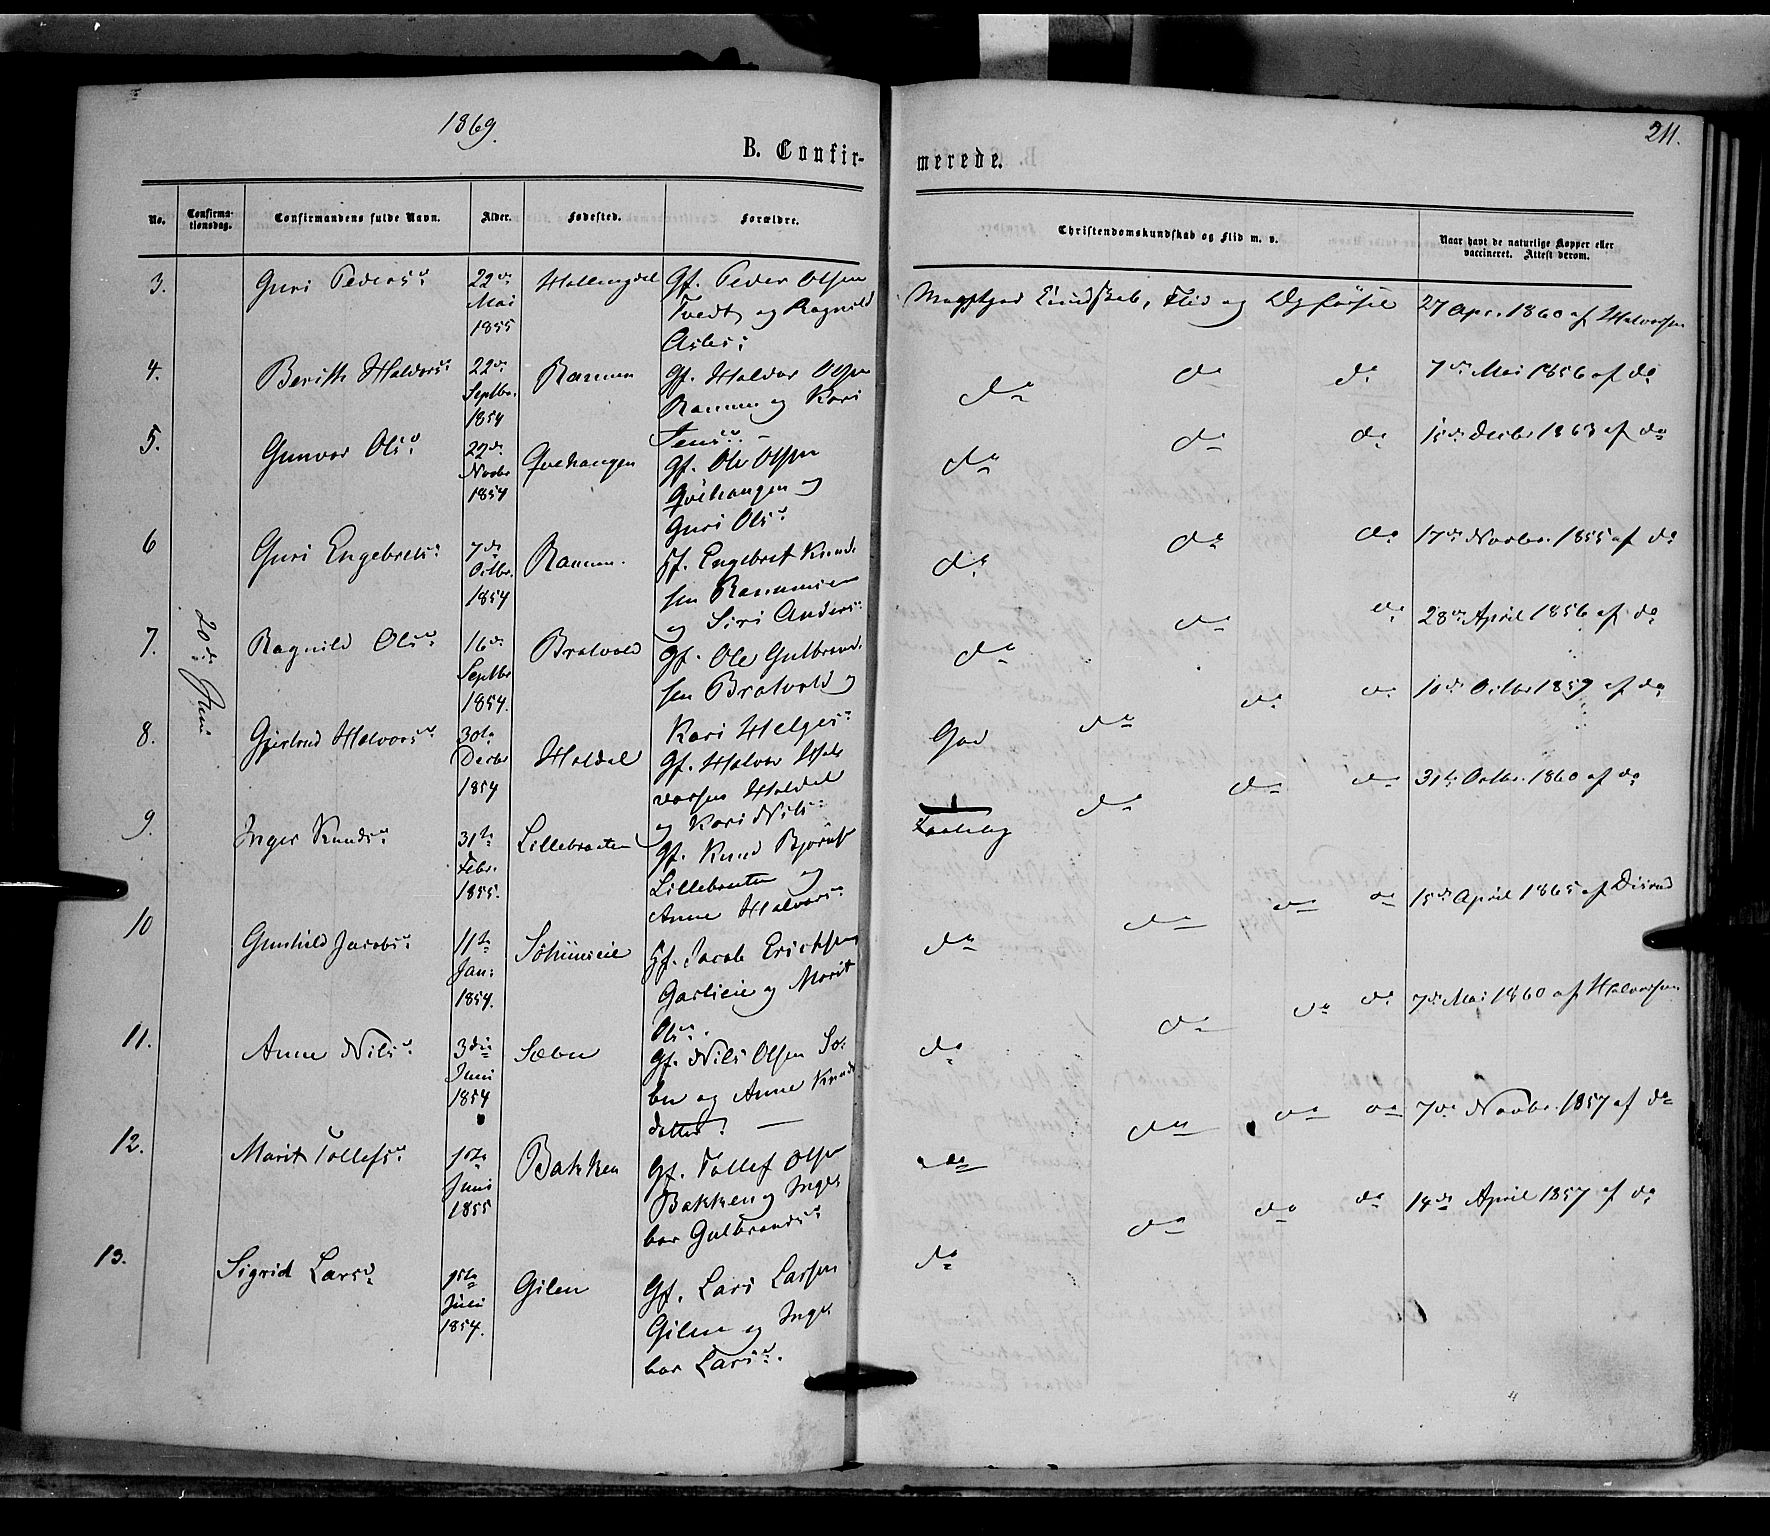 1869.
211.
B. Confir-
merede.
No.
Confirma-
tionsdag.
Confirmandens fulde Navn.
Alder.
Fødested.
Forældre.
Christendomskundskab og Flid m. v.
Naar havt de naturlige Kopper eller
vaccineret. Attest derom.
20de Juni
3.
Guri Peders:
22de
Mai
1855
Hallingdal
Gf. Peder Olsen
Tvedt og Ragnild
Asles:
Kundskab, Flid og Opførsel
27 Apr. 1860 af Halvorsen
4.
Berith Halvors:
22de
Septbr.
1854
Ramen
Gf. Halvor Olsen
Ramen og Kari
Jens:
do do do
7de Mai 1856 af do
5.
Gunvor Ols:
22de
Novbr
1854
Qvehaugen
Gf. Ole Olsen
Qvehaugen og
Guri Ols:
do do do
15de Decbr 1863 af do
6
Guri Engebrets:
7de
Octbr.
1854
Ramen.
Gf. Engebret Knud-
sen Ramen
og Siri Anders:
do do do
17de Novbr. 1855 af do
7.
Ragnild Ols:
16de
Septbr
1854.
Bratvold
Gf. Ole Gulbrand-
sen Bratvold og
Kari Helges:
do do do
28de April 1856 af do
8.
Gjertrud Halvors:
30te
Decbr
1854
Haldal
Gf. Halvor Hal-
vorsen Haldal
og Kari Nils:
God do do do
10de Octbr 1857 af do
9.
Inger Knuds:
31te
Febr.
1855.
Lillebraaten
Gf. Knud Bjørns
Lillebraaten og
Anne Halvors:
do do do
31te Octbr. 1860 af do
10
Gunhild Jacobs:
11te
Jan:
1854.
Gf. Jacob Ericksen
og Marit
Ols:
do do do do
15de April 1865 af Disrud
11.
Anne Nils:
3die
Juni
1854
Sæbu
Gf. Nils Olsen Sæ-
bu og Anne Knuds
datter.
do do do do
7de Mai 1860 af Halvorsen
12.
Marit Tollefs:
10de
Juni
1855
Bakken
Gf. Tollef Olsen
Bakken og Inge-
bor Gulbrands:
do do do do
7de Novbr. 1857 af do
13.
Sigrid Lars:
15de
Juli
1854.
Gilen
Gf. Lars Larsen
Gilen og Inge-
bor Lars:
do do do do
14de April 1857 af do